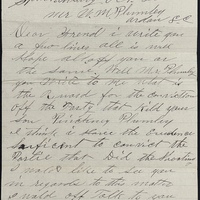 Mr W. M. Plumley
Arden N.C.
Dear Friend I write you
a few lines all is well
Hope all of you are
the same. Well Mr Plumley
you to me what is
the Reward for the Conviction
off the Party that Kild your
Son Plumley
I think i have the Evidence
Sarficent to Convict the
Partie that Did the Shooting
I wold like to See you
in regards to this matter
I wold off talk to you